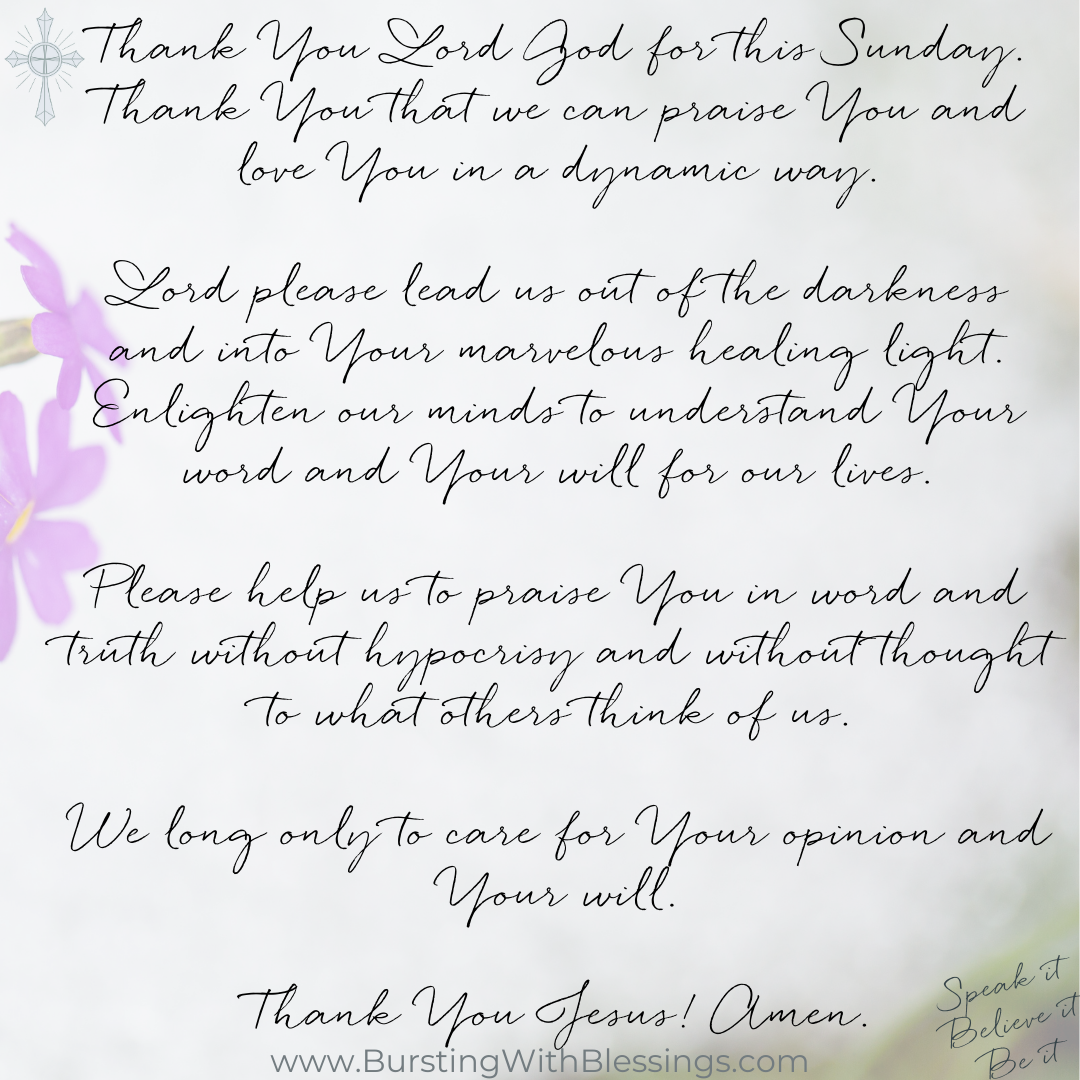 Thank You Lord God for this Sunday.
Thank You that we can praise You and
love You in a dynamic way.
Lord please lead us out of the darkness
and into Your marvelous healing light.
Enlighten our minds to understand Your
word and Your will for our lives.
Please help us to praise You in word and
truth without hypocrisy and without thought
to what others think of us.
We long only to care for Your opinion and
Your will.
Thank You Jesus! Amen.
Speak it
Believe it
Be it
www.BurstingWithBlessings.com